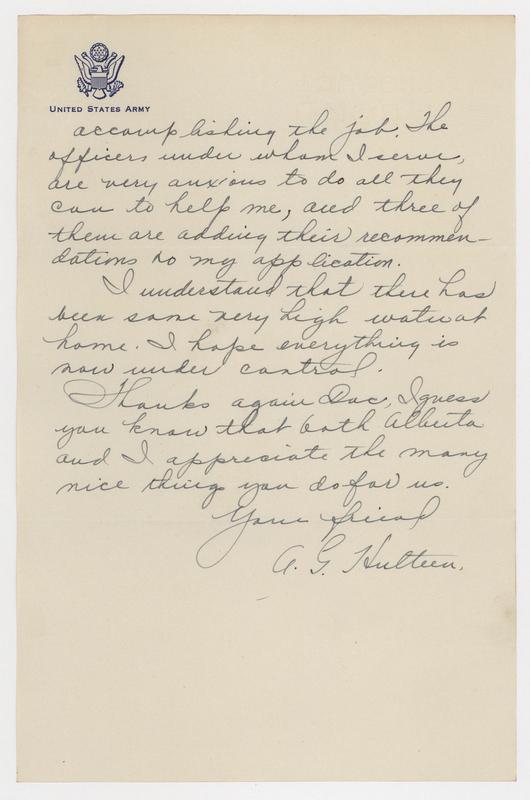 UNITED STATES ARMY
accomplishing the job. The
officers under whom I serve,
are very anxious to do all they
can to help me, and three of
them are adding their recommen-
dations to my application.
I understand that there has
been some very high water at
home. I hope everything is
now under control.
Thanks again Doc, I guess
you know that both Alberta
and I appreciate the many
nice things you do for us.
Your friend
A. G. Hulteen.